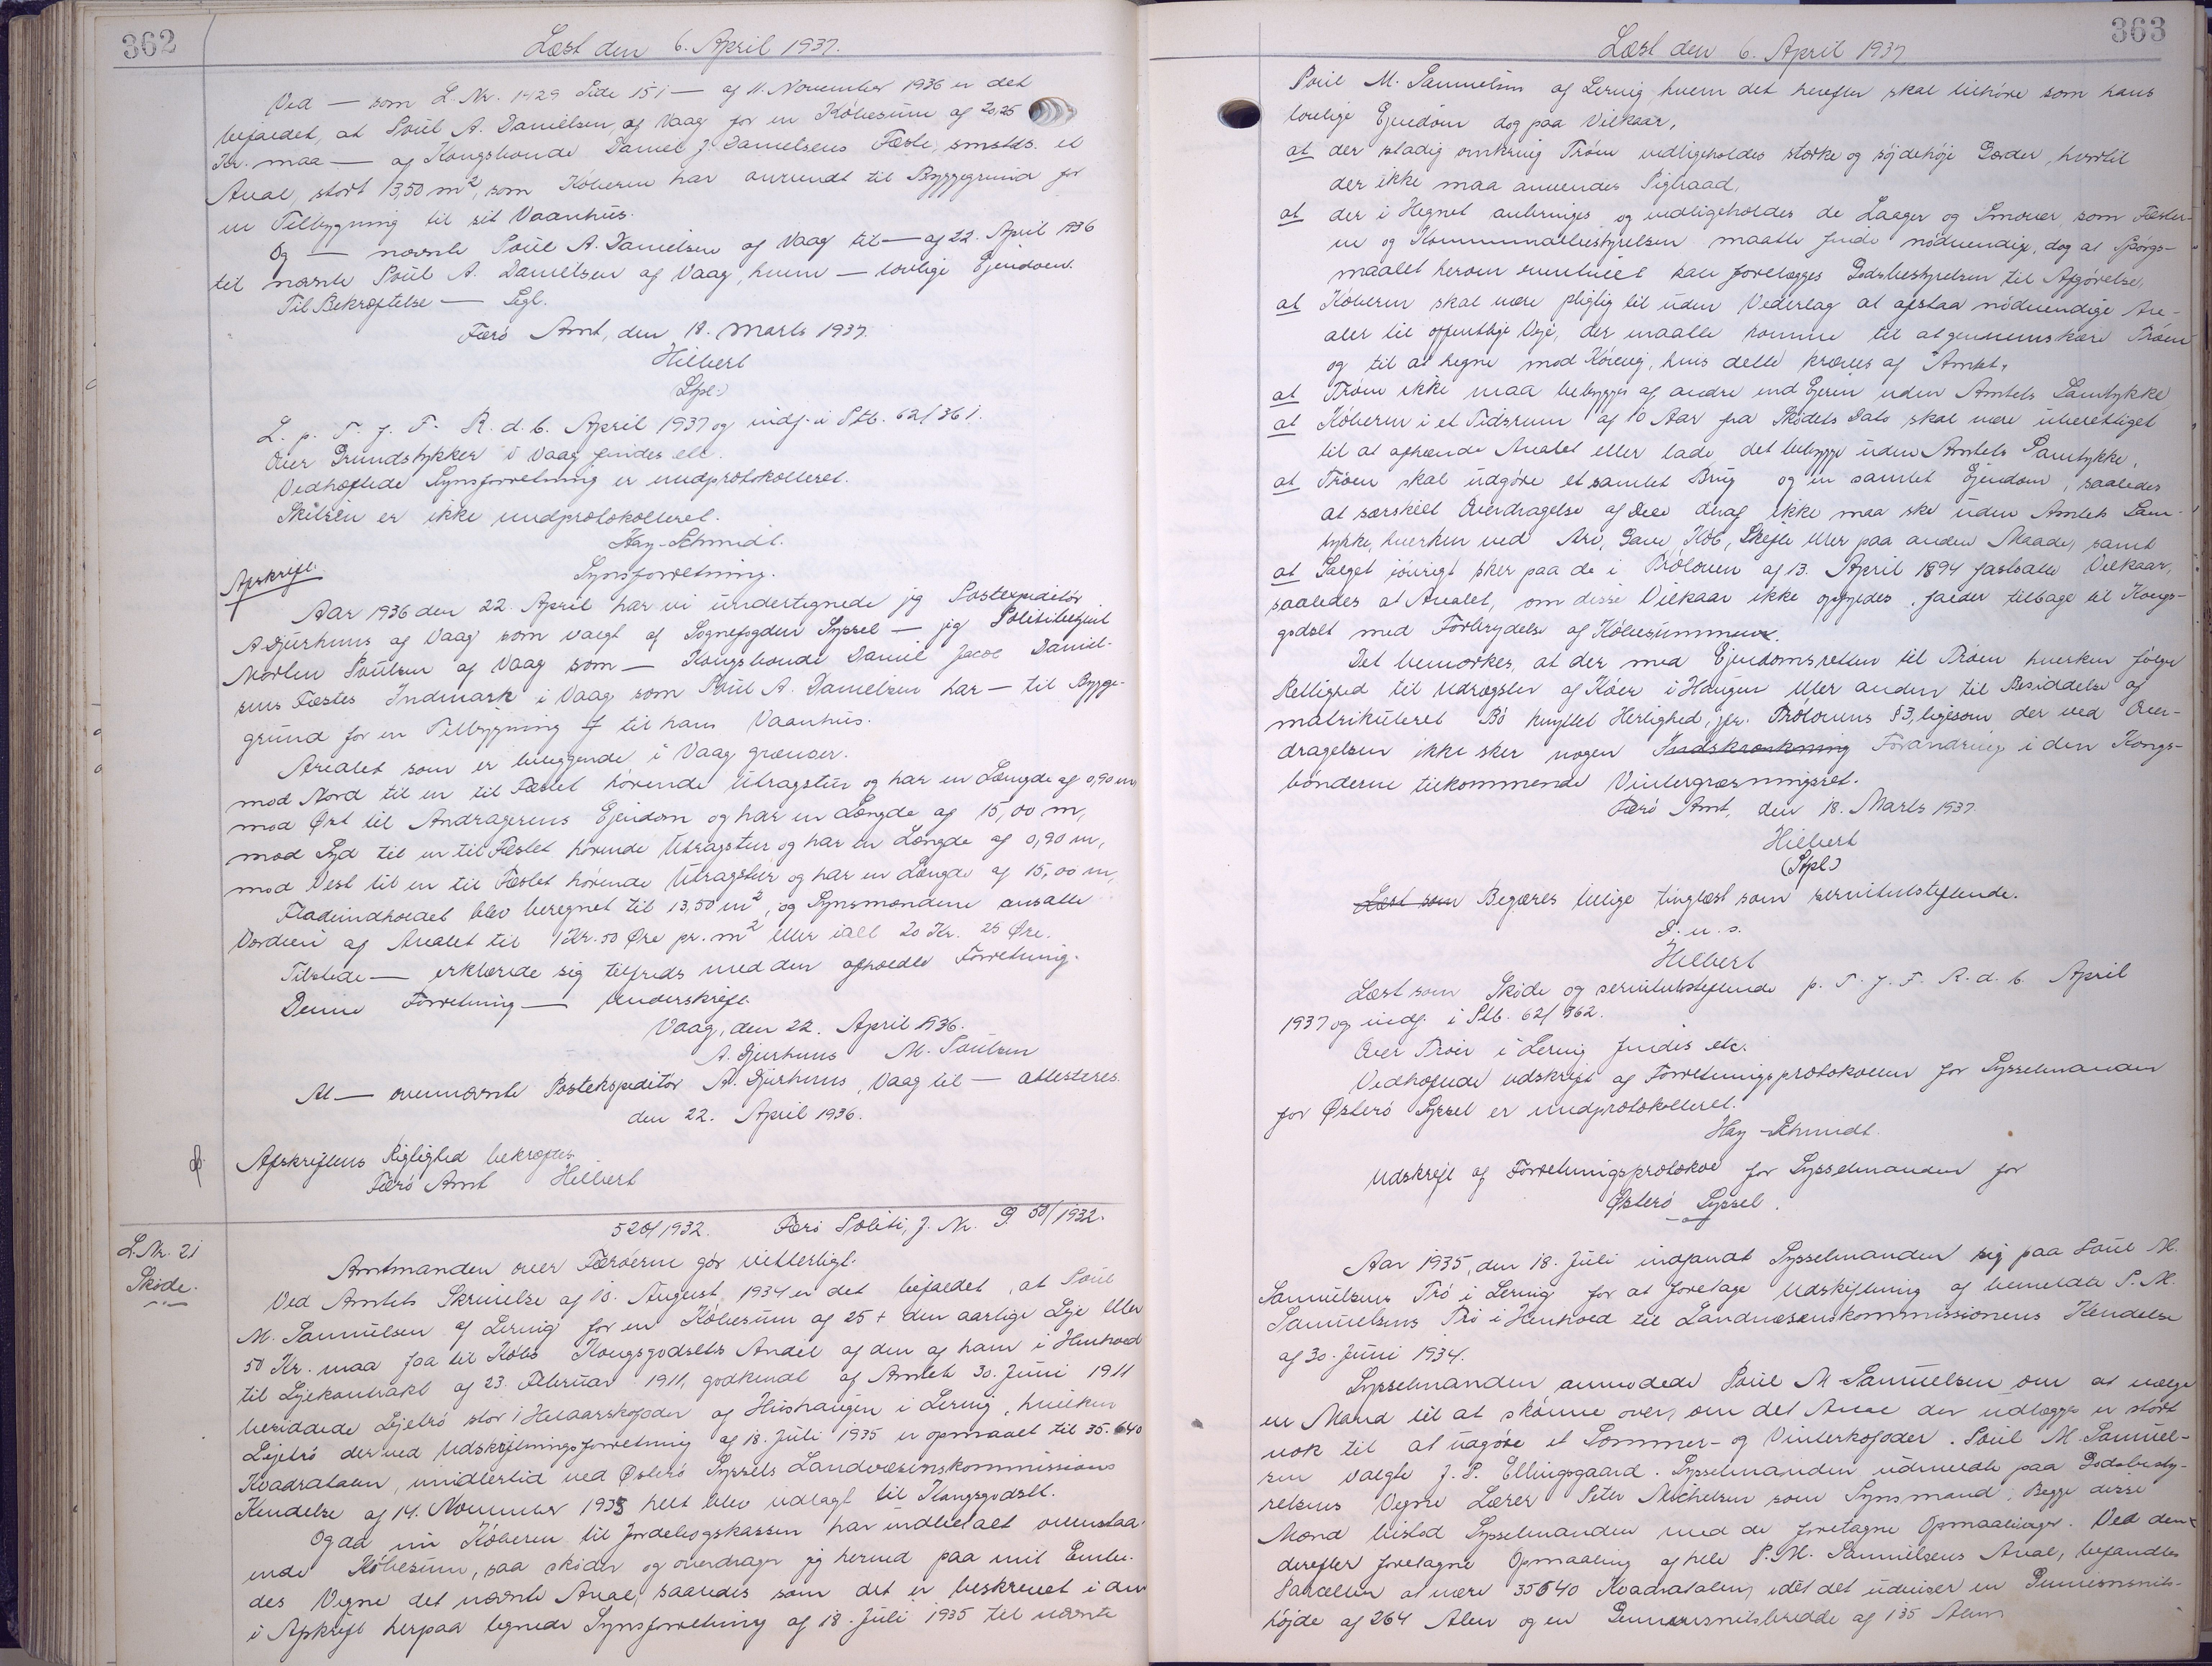 362
Læst den 6. April 1937.
Ved — som L. Nr. 1429 Side 151 — af 11. November 1936 er det
bifaldet, at Poul A. Danielsen, af Vaag for en Købesum af 20,25
Kr. maa — af Kongsbonde Daniel J. Danielsens Fæste, smstds. et
Areal, stort 13,50 m², som Køberen har anvendt til Byggegrund for
en Tilbygning til sit Vaanhus.
Og — nævnte Poul A. Danielsen af Vaag til — af 22. April 1936
til nævnte Poul A. Danielsen af Vaag, hvem — lovlige Ejendom.
Til Bekræftelse — Segl.
Færø Amt, den 18. Marts 1937.
Hilbert
(Stpl.)
L. p. T. f. F. R. d. 6. April 1937 og indf. i Ptb. 62/361.
Over Grundstykker i Vaag findes etc.
Vedhæftede Synsforretning er medprotokolleret.
Skitsen er ikke medprotokolleret.
Hay-Schmidt.
Afskrift.
Synsforretning.
Aar 1936 den 22. April har vi undertegnede jeg Postexpeditør
A. Djurhuus af Vaag som valgt af Sognefogden Syssel — jeg Politibetjent
Morten Poulsen af Vaag som — Kongsbonde Daniel Jacob Daniel-
sens Fæstes Indmark i Vaag som Poul A. Danielsen har — til Bygge-
grund for en Tilbygning til hans Vaanhus.
Arealet som er beliggende i Vaag grænser.
mod Nord til en til Fæstet hørende Utragstur og har en Længde af 0,90 m,
mod Øst til Andragerens Ejendom og har en Længde af 15,00 m,
mod Syd til en til Fæstet hørende Utragstur og har en Længde af 0,90 m,
mod Vest til en til Fæstet hørende Utragstur og har en Længde af 15,00 m,
Fladeindholdet blev beregnet til 13,50 m², og Synsmændene ansatte
Værdien af Arealet til 1 Kr. 50 Øre pr. m² eller ialt 20 Kr. 25 Øre.
Tilstede — erklærede sig tilfreds med den afholdte Forretning.
Denne Forretning — Underskrift.
Vaag, den 22. April 1936.
A. Djurhuus M. Poulsen
At — ovennævnte Postekspeditør A. Djurhuus, Vaag til — attesteres.
den 22. April 1936.
Afskriftens Rigtighed bekræftes.
Færø Amt Hilbert
520/1932. Færø Politi, J. Nr. P. 50/1932.
L. Nr. 21
Skøde.
Amtmanden over Færøerne gør vitterligt.
Ved Amtets Skrivelse af 13. August 1934 er det bifaldet, at Poul
M. Samuelsen af Lervig for en Købesum af 25 + den aarlige Leje eller
50 Kr. maa faa til Købs Kongsgodsets Andel af den af ham i Henhold
til Lejekontrakt af 23. Februar 1911, godkendt af Amtet 30. Juni 1911
besiddede Lejetrø stor 1 Helaarskofoder af Húshaugen i Lervig, hvilken
Lejetrø der ved Udskiftningsforretning af 18. Juli 1935 er opmaalt til 35.640
Kvadratalen, imidlertid ved Østerø Syssels Landvæsenskommissions
Kendelse af 14. November 1933 helt blev udlagt til Kongsgodset.
Og da nu Køberen til Jordebogskassen har indbetalt ovenstaa-
ende Købesum, saa skøder og overdrager jeg herved paa mit Embe-
des Vegne det nævnte Areal, saaledes som det er beskrevet i den
i Afskrift herpaa tegnede Synsforretning af 18. Juli 1935 til nævnte
363
Læst den 6. April 1937
Poul M. Samuelsen af Lervig, hvem det herefter skal tilhøre som hans
lovlige Ejendom dog paa Vilkaar,
at der stadig omkring Trøen vedligeholdes stærke og söjdehöje Gærder, hvortil
der ikke maa anvendes Pigtraad,
at der i Hegnet anbringes og vedligeholdes de Laager og Smouer, som Fæster-
ne og Kommunalbestyrelsen maatte finde nödvendige, dog at Spørgs-
maalet herom eventuelt kan forelægges Godsbestyrelsen til Afgörelse,
at Köberen skal være pligtig til uden Vederlag at afstaa nödvendige Are-
aler til offentlige Veje, der maatte komme til at gennemskære Tröen
og til at hegne mod Körevej, hvis dette kræves af Amtet,
at Tröen ikke maa bebygges af andre end Ejeren uden Amtets Samtykke
at Köberen i et Tidsrum af 10 Aar fra Skødets Dato skal være uberettiget
til at afhænde Arealet eller lade det bebygge uden Amtets Samtykke,
at Trøen skal udgöre et samlet Brug og en samlet Ejendom, saaledes
at særskilt Overdragelse af Dele deraf ikke maa ske uden Amtets Sam-
tykke, hverken ved Arv, Gave, Köb, Skifte eller paa anden Maade, samt
at Salget iøvrigt sker paa de i Trøloven af 13. April 1894 fastsatte Vilkaar,
saaledes at Arealet, om disse Vilkaar ikke opfyldes, falder tilbage til Kongs-
godset med Fortrydelse af Købesummen.
Det bemærkes, at der med Ejendomsretten til Trøen hverken følger
Rettighed til Udrøgsler af Köer i Haugen eller anden til Besiddelse af
matrikuleret Bö knyttet Herlighed, jfr. Trölovens § 3, ligesom der ved Over-
dragelsen ikke sker nogen Indskrænkning Forandring i den Kongs-
bönderne tilkommende Vintergræsningsret.
Færö Amt, den 18. Marts 1937.
Hilbert
(Stpl.)
Læst som Begæres tillige tinglæst som servitutstiftende.
D. u. s.
Hilbert
Læst som Skøde og servitutstiftende p. T. f. F. R. d. 6. April
1937 og indf. i Ptb. 62/362.
Over Trøir i Lervig findes etc.
Vedhæftede Udskrift af Forretningsprotokollen for Sysselmanden
for Østerø Syssel er medprotokolleret.
Hay-Schmidt.
Udskrift af Forretningsprotokol for Sysselmanden for
Østerö Syssel.
Aar 1935, den 18. Juli indfandt Sysselmanden sig paa Poul M.
Samuelsens Trö i Lervig for at foretage Udskiftning af bemeldte P. M.
Samuelsens Trö i Henhold til Landvæsenskommissionens Kendelse
af 30. Juni 1934.
Sysselmanden anmodede Poul M Samuelsen om at vælge
en Mand til at skønne over, om det Areal der udlægges er stört
nok til at udgöre et Sommer- og Vinterkofoder. Poul M. Samuel-
sen valgte J. P. Ellingsgaard. Sysselmanden udmeldte paa Godsbesty-
relsens Vegne Lærer Peter Michelsen som Synsmand. Begge disse
Mænd bistod Sysselmanden med de foretagne Opmaalinger. Ved den
derefter foretagne Opmaaling af hele P. M. Samuelsens Areal, befandtes
Parcellen at være 35640 Kvadratalen, idet det udviser en Gennemsnits-
højde af 264 Alen og en Gennemsnitsbredde af 135 Alen